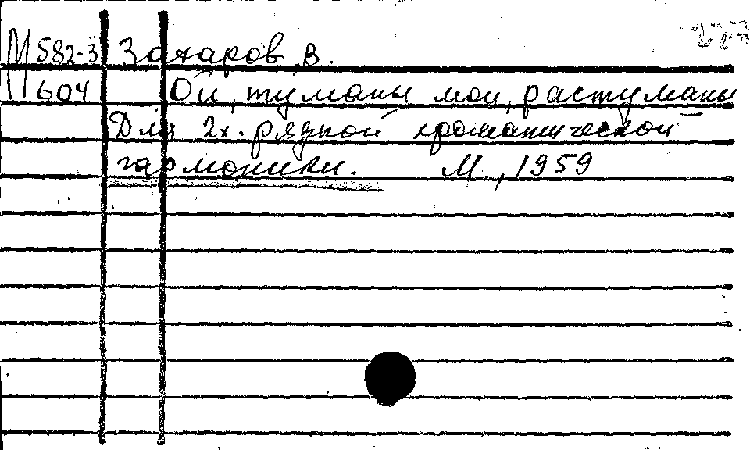 М 582-3 Захаров, В.
П 604 Ой, туманы мои, растуманы
Для 2х. рядной хроматической
гармоники. М., 1959